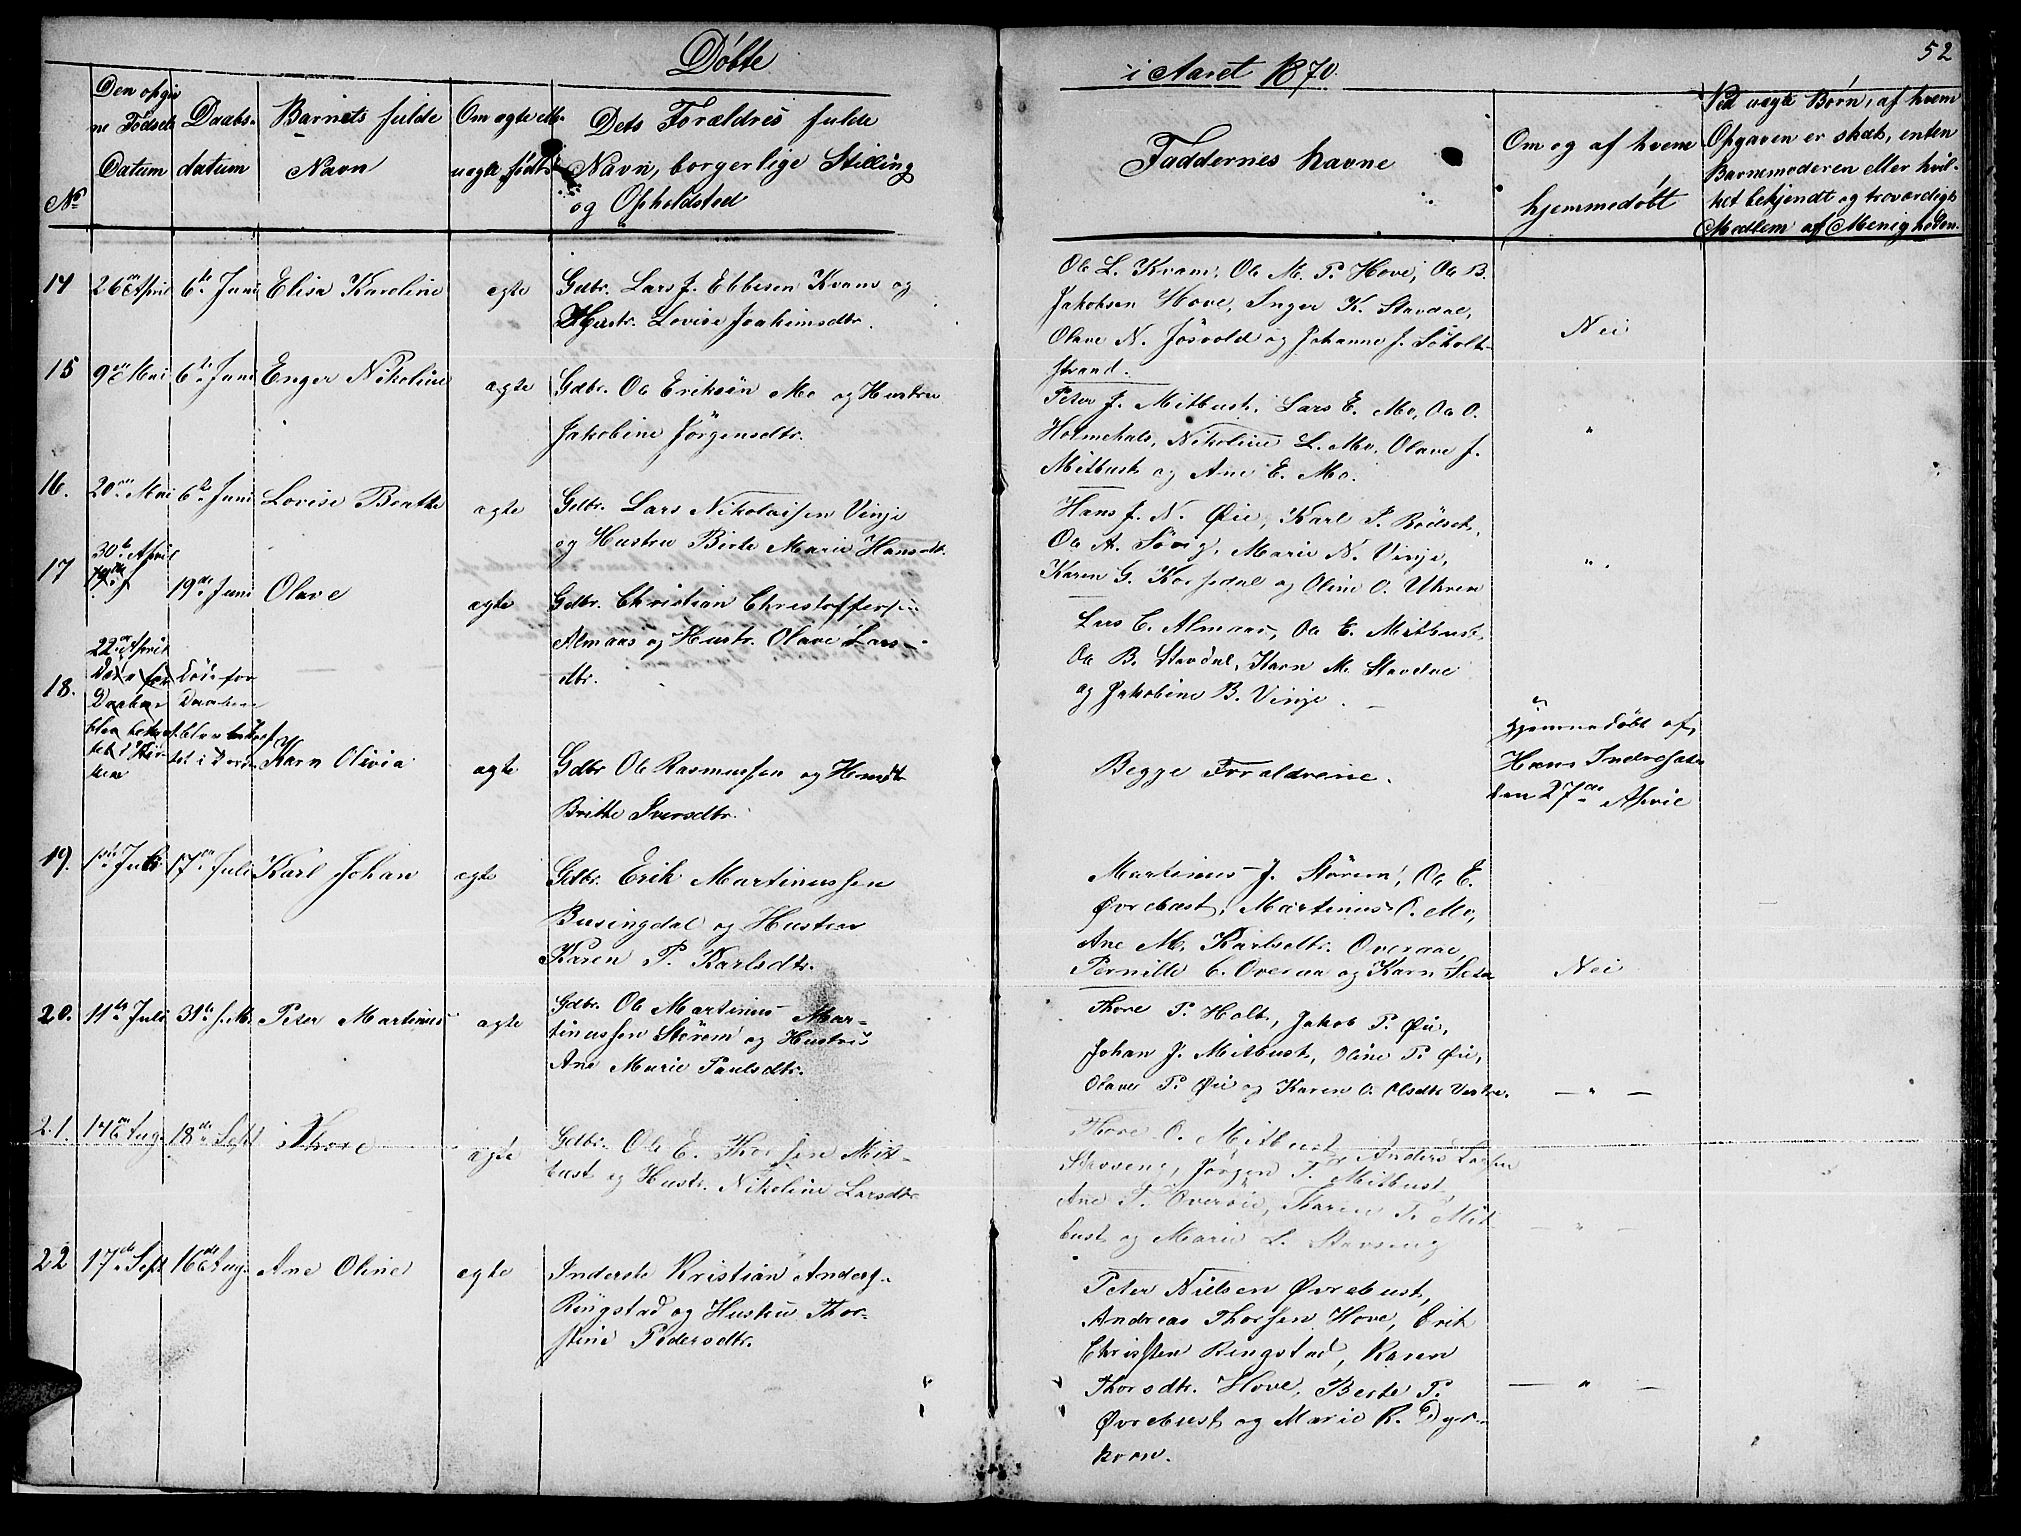 52
Døbte
i Aaret 1870.
No
Den opgiv
ne Fødsels
Datum
Daabs-
datum
Barnets fulde
Navn
Om ægte ell.
uægte født
Dets Forældres fulde
Navn, borgerlige Stilling
og Opholdsted
Faddernes Navne
Om og af hvem
hjemmedøbt
Ved uægte Børn, af hvem
Opgaven er skeet, enten
Barnemoderen eller hvil-
ket bekjendt og troværdigt
Medlem af Menigheden.
14 26de April 6te Juni Elisa Karoline ægte Gdbr. Lars J. Ebbesen Kvam og
Hustr. Lovise Joakimsdtr.
Ole L. Kvam, Ole M. P. Hove, Ole B.
Jakobsen Hove, Inger K. Stavdal,
Olave N. Jösvold og Johanne J. Søholt-
strand.
Nei
15 9de Mai 6te Juni Enger Nikoline ægte Gdbr. Ole Eriksen Mo og Hustru
Jakobine Jörgensdtr.
Peter J. Mitbust, Lars E. Mo, Ole O.
Holmehals, Nikoline L. Mo, Olave J.
Mitbust og Ane E. Mo.
"
16. 20de Mai 6te Juni Lovise Beathe ægte Gdbr. Lars Nikolaisen Vinje
og Hustru Birte Marie Hansdt.
Hans J. N. Øie, Karl P. Rödset,
Ole A. Søvig, Marie N. Vinje,
Karen G. Korsedal og Oline O. Uhren
"
17 30te April
19de Juni Olave ægte Gdbr. Christian Christoffersen
Almaas og Hustr. Olave Lars-
dtr.
Lars C. Almaas, Ole E. Mitbust,
Ole B. Stavdal, Karn M. Stavdal
og Jakobine B. Vinje.
"
18. 22de April
Døde før
Daaben
blev bekræf
tet i Kir-
ken
Døde før
Daaben
blev bekræf
tet i
Karn Olivia ægte Gdbr Ole Rasmussen og Hustr
Britte Iversdtr.
Begge Forældrene.
Hjemmedøbt af
Hans
den 27de April
19. 1ste Juli 17de Juli Karl Johan ægte Gdbr. Erik Martinussen
Busingdal og Hustru
Karen P. Karlsdtr.
Martinus J. Störem, Ole E.
Øvrebust, Martinus O. Mo,
Ane M. Karlsdtr. Overaae,
Pernille C. Overaa og Karn
Nei
20. 11te Juli 31te s. M. Peter Martinus ægte Gdbr. Ole Martinus Mar-
tinussen Störem og Hustru
Ane Marie Paulsdtr.
Thore P. Holt, Jakob P. Øie,
Johan J. Mitbust, Oline P. Øie,
Olave P. Øie og Karen O. Olsdtr Vestre.
— " —
21. 14de Aug. 18de Sept Thore ægte Gdbr. Ole E. Thorsen Mit-
bust og Hustr. Nikoline Larsdtr.
Thore O. Mitbust, Anders
Stavseng, Jörgen T. Mitbust,
Ane T. Overøie, Karen T. Mit
bust og Marie L. Stavseng
— " —
22 17de Sept 16de Aug. Ane Oline ægte Inderste Kristian Anders.
Ringstad og Hustru Thor-
stine Pedersdtr.
Peter Nielsen Øvrebust,
Andreas Thorsen Hove, Erik
Christen Ringstad, Karen
Thorsdtr. Hove, Berte P.
Øvrebust og Marie R. Dyr-
korn.
— " —